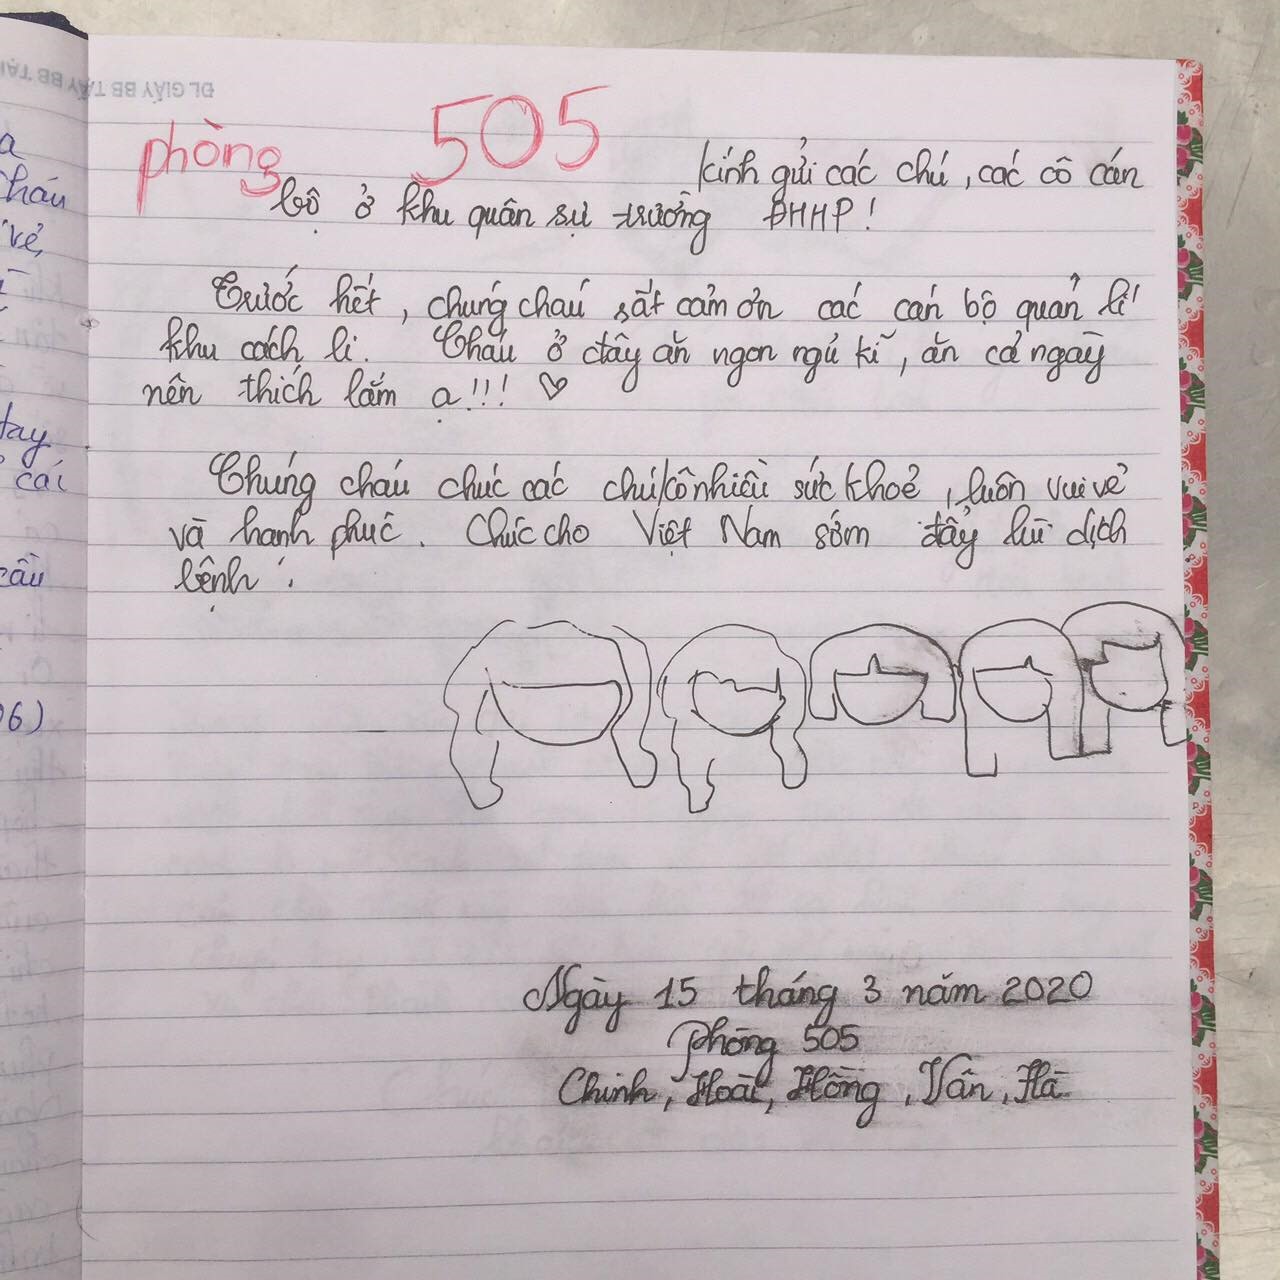 ĐL GIẤY BB TẬY BB TẠI
phòng 505
kính gửi các chú, các cô cán
bộ ở khu quân sự trường ĐHHP!
Trước hết, chúng cháu rất cảm ơn các cán bộ quản lí
khu cách li. Cháu ở đây ăn ngon ngủ kĩ, ăn cả ngày
nên thích lắm ạ!!! ♡
Chúng cháu chúc các chú/cô nhiều sức khoẻ, luôn vui vẻ
và hạnh phúc. Chúc cho Việt Nam sớm đẩy lùi dịch
bệnh.
Ngày 15 tháng 3 năm 2020
Phòng 505
Chinh, Hoài, Hồng, Vân, Hà
a
cháu
vẻ,
tay
cái
cầu
06)